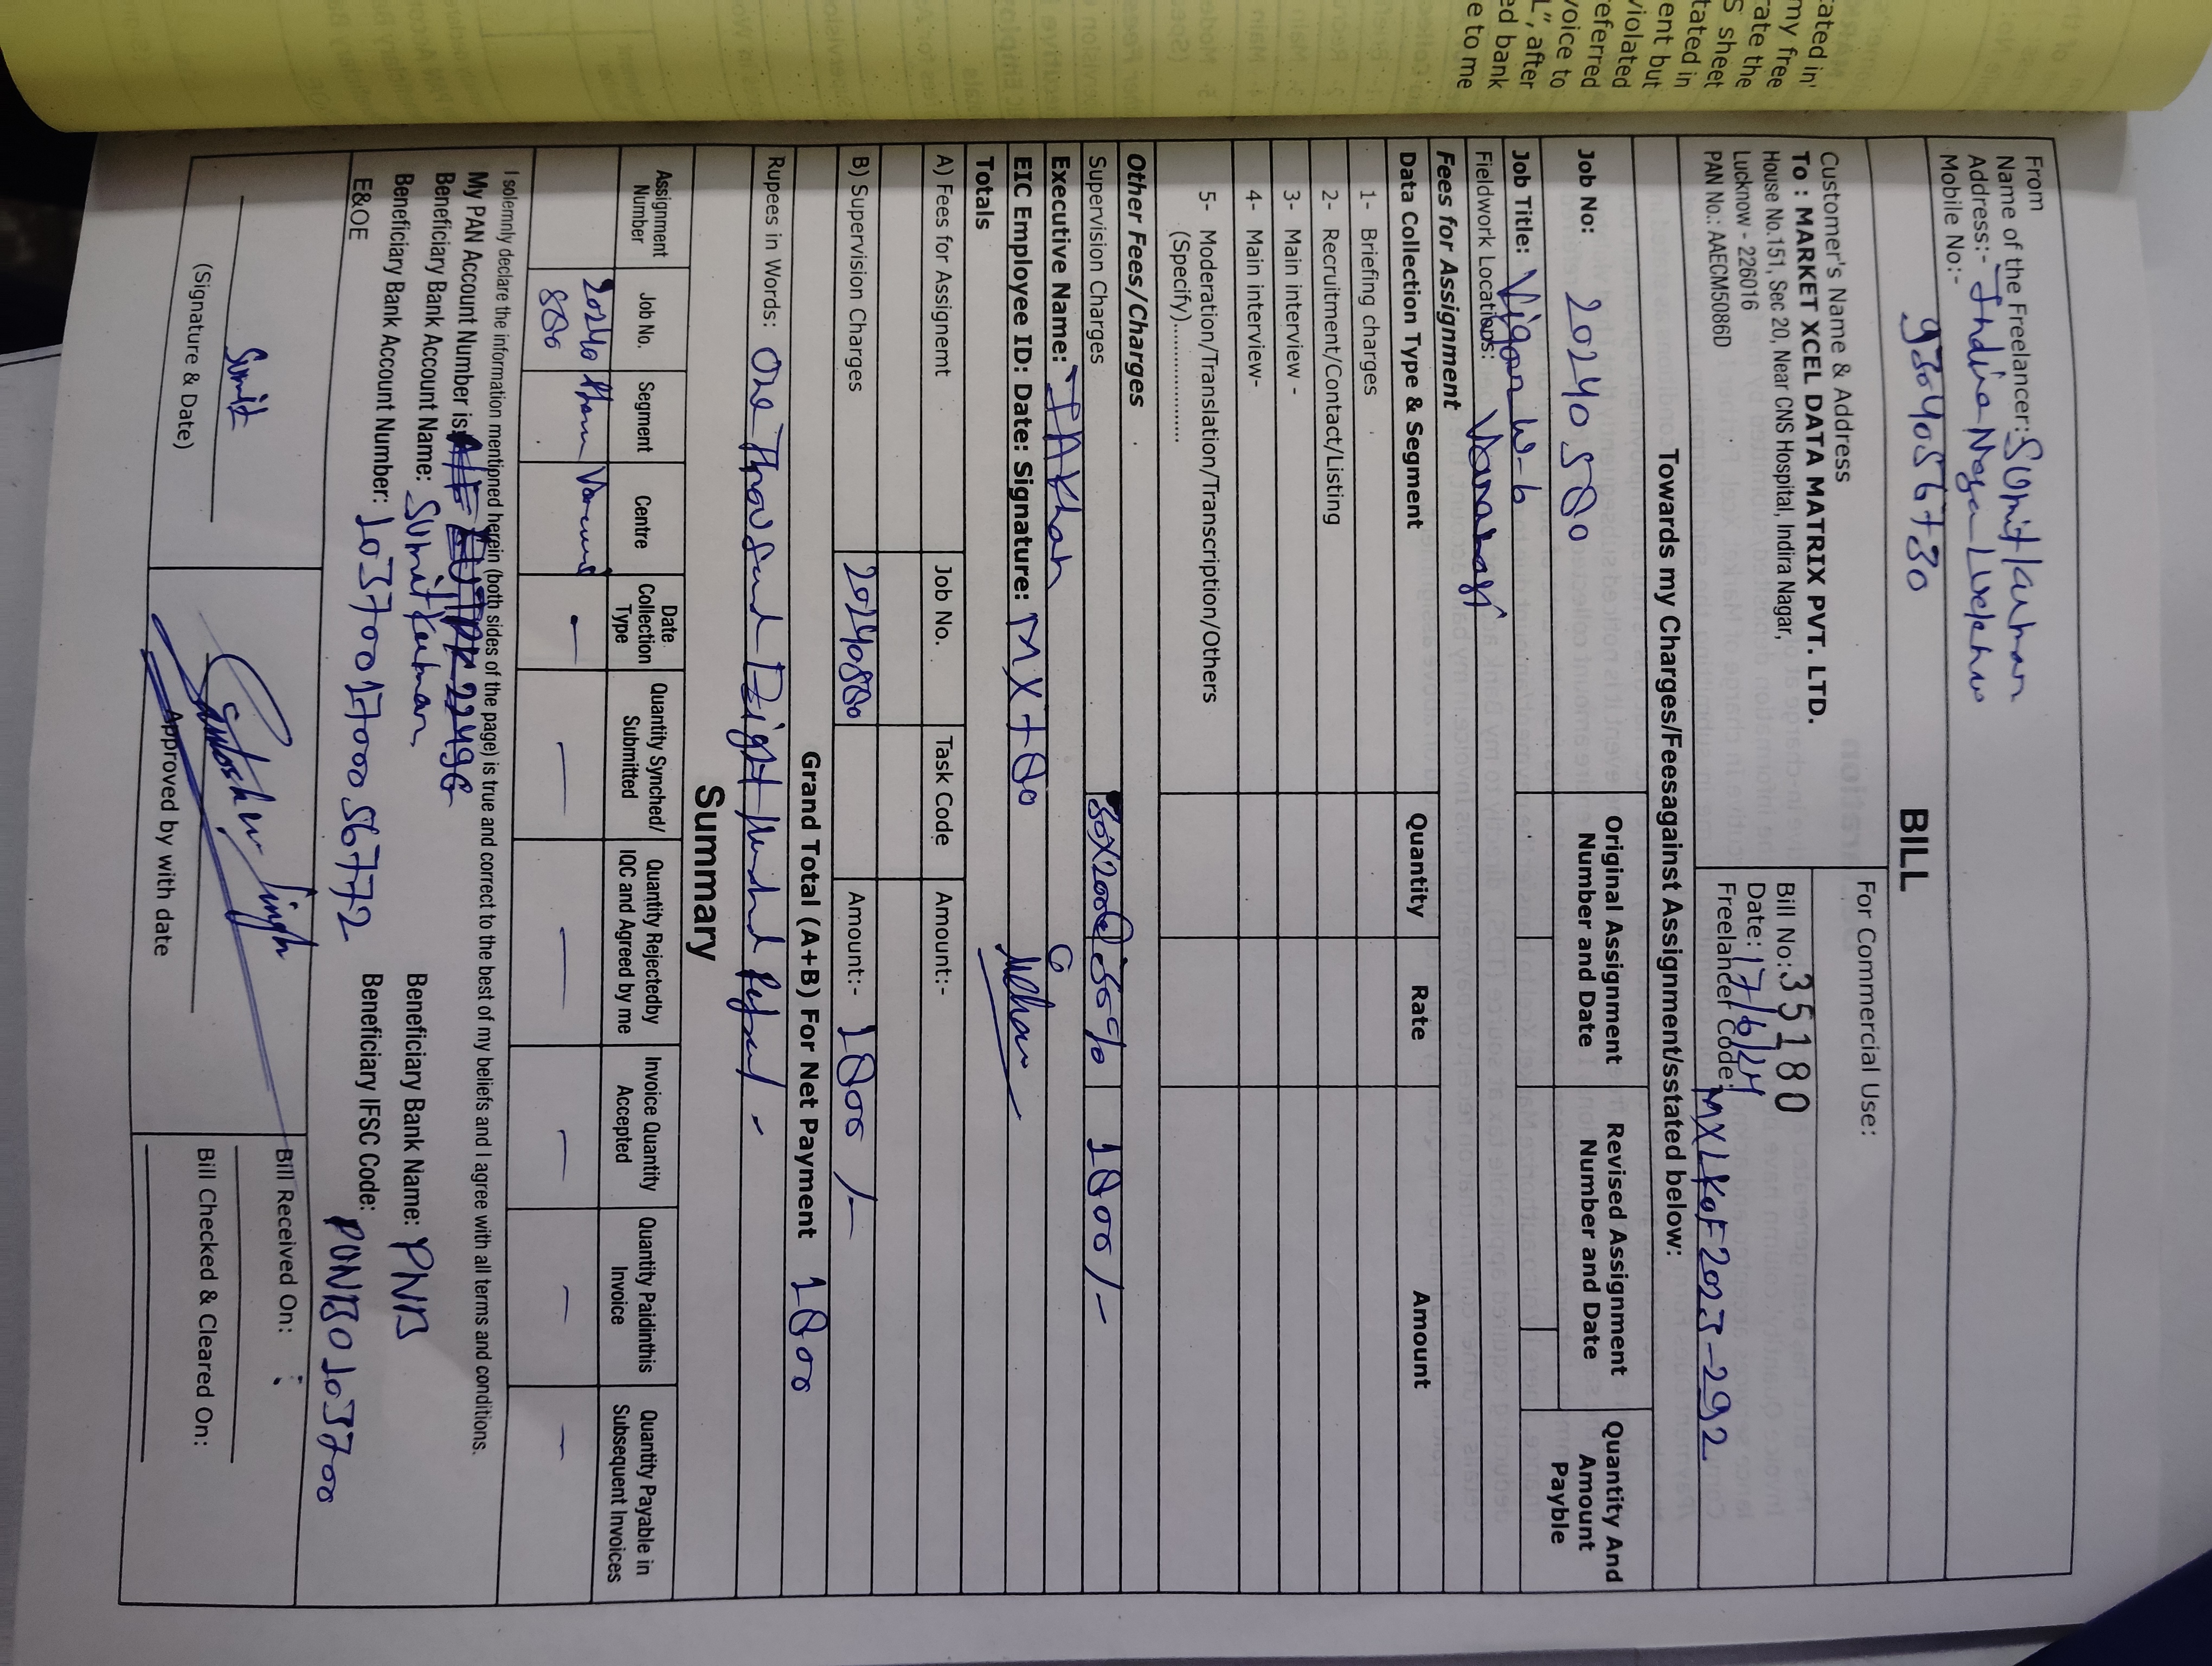 tated in'
my free
rate the
S sheet
tated in
ent but
violated
referred
voice to
L", after
ed bank
e to me
From
Name of the Freelancer: Sumit Kumar
Address:- Indira Nagar
Mobile No:- 9304056730
BILL
For Commercial Use:
Customer's Name & Address
To : MARKET XCEL DATA MATRIX PVT. LTD.
House No.151, Sec 20, Near CNS Hospital, Indira Nagar,
Lucknow - 226016
PAN No.: AAECM5086D
Bill No.: 35180
Date: 17/6/24
Freelancer Code: MXLKOF2023-292
Towards my Charges/Feesagainst Assignment/sstated below:
Job No:
Original Assignment Number and Date
Revised Assignment Number and Date
Quantity And Amount Payble
Job Title: W-6
Fieldwork Locations: Varanasi
Fees for Assignment
Data Collection Type & Segment Quantity Rate Amount
1- Briefing charges
2- Recruitment/Contact/Listing
3- Main interview -
4- Main interview-
5- Moderation/Translation/Transcription/Others
(Specify)................
Other Fees/Charges
Supervision Charges 50% 1800/-
Executive Name:
EIC Employee ID: Date: Signature:
Totals
A) Fees for Assignemt Job No. Task Code Amount:-
B) Supervision Charges Amount:- 1800/-
Grand Total (A+B) For Net Payment 1800
Rupees in Words: One Thousand Eight Hundred
Summary
Assignment Number Job No. Segment Centre Date Collection Type Quantity Synched/ Submitted Quantity Rejectedby IQC and Agreed by me Invoice Quantity Accepted Quantity Paidinthis Invoice Quantity Payable in Subsequent Invoices
I solemnly declare the information mentioned herein (both sides of the page) is true and correct to the best of my beliefs and I agree with all terms and conditions.
My PAN Account Number is:
Beneficiary Bank Account Name: Sumit Kumar Beneficiary Bank Name: PNB
Beneficiary Bank Account Number: 1037001700056772 Beneficiary IFSC Code: PUNB0103700
E&OE
Sumit
(Signature & Date)
Santosh Singh
Approved by with date
Bill Received On:
Bill Checked & Cleared On: